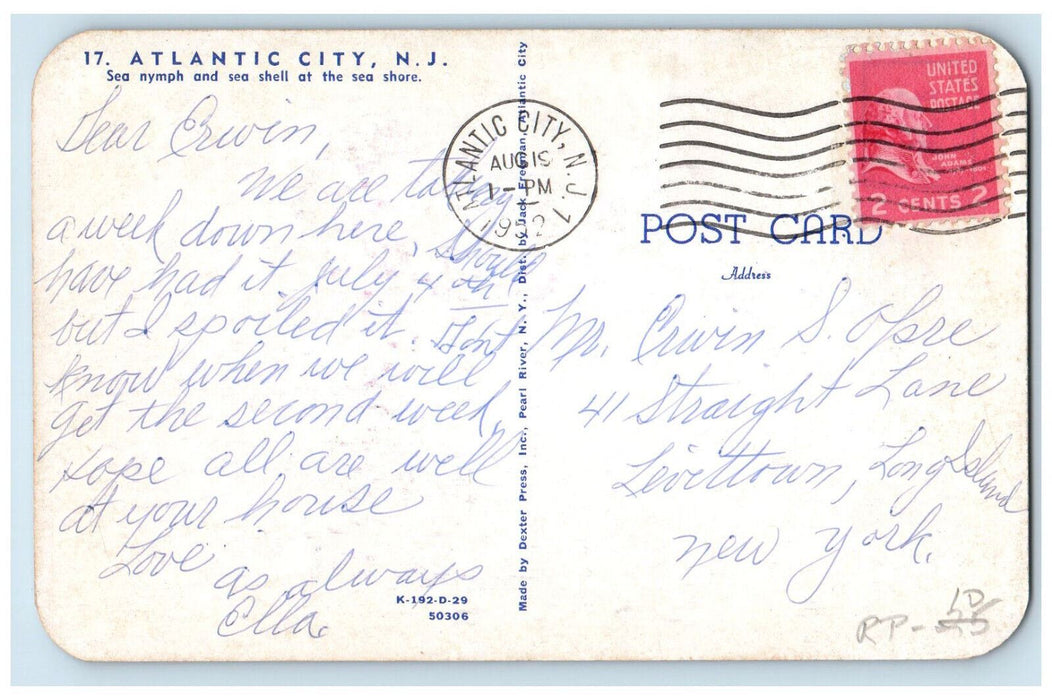 17. ATLANTIC CITY, N. J.
Sea nymph and sea shell at the sea shore.
Dear Erwin,
We are taking
a week down here, should
have had it July 4th
but I spoiled it. Don't
know when we will
get the second week,
Hope all are well
at your house
Love
as always
Ella.
K-192-D-29
50306
Made by Dexter Press, Inc., Pearl River, N. Y., Dist. by Jack Freeman, Atlantic City
ATLANTIC CITY, N. J. 1
AUG 15
1 - PM
1952
UNITED
STATES
POSTAGE
JOHN
ADAMS
2 CENTS 2
POST CARD
Address
Mr. Erwin S. Opre
41 Straight Lane
Levittown, Long Island
New York.
RP-
10